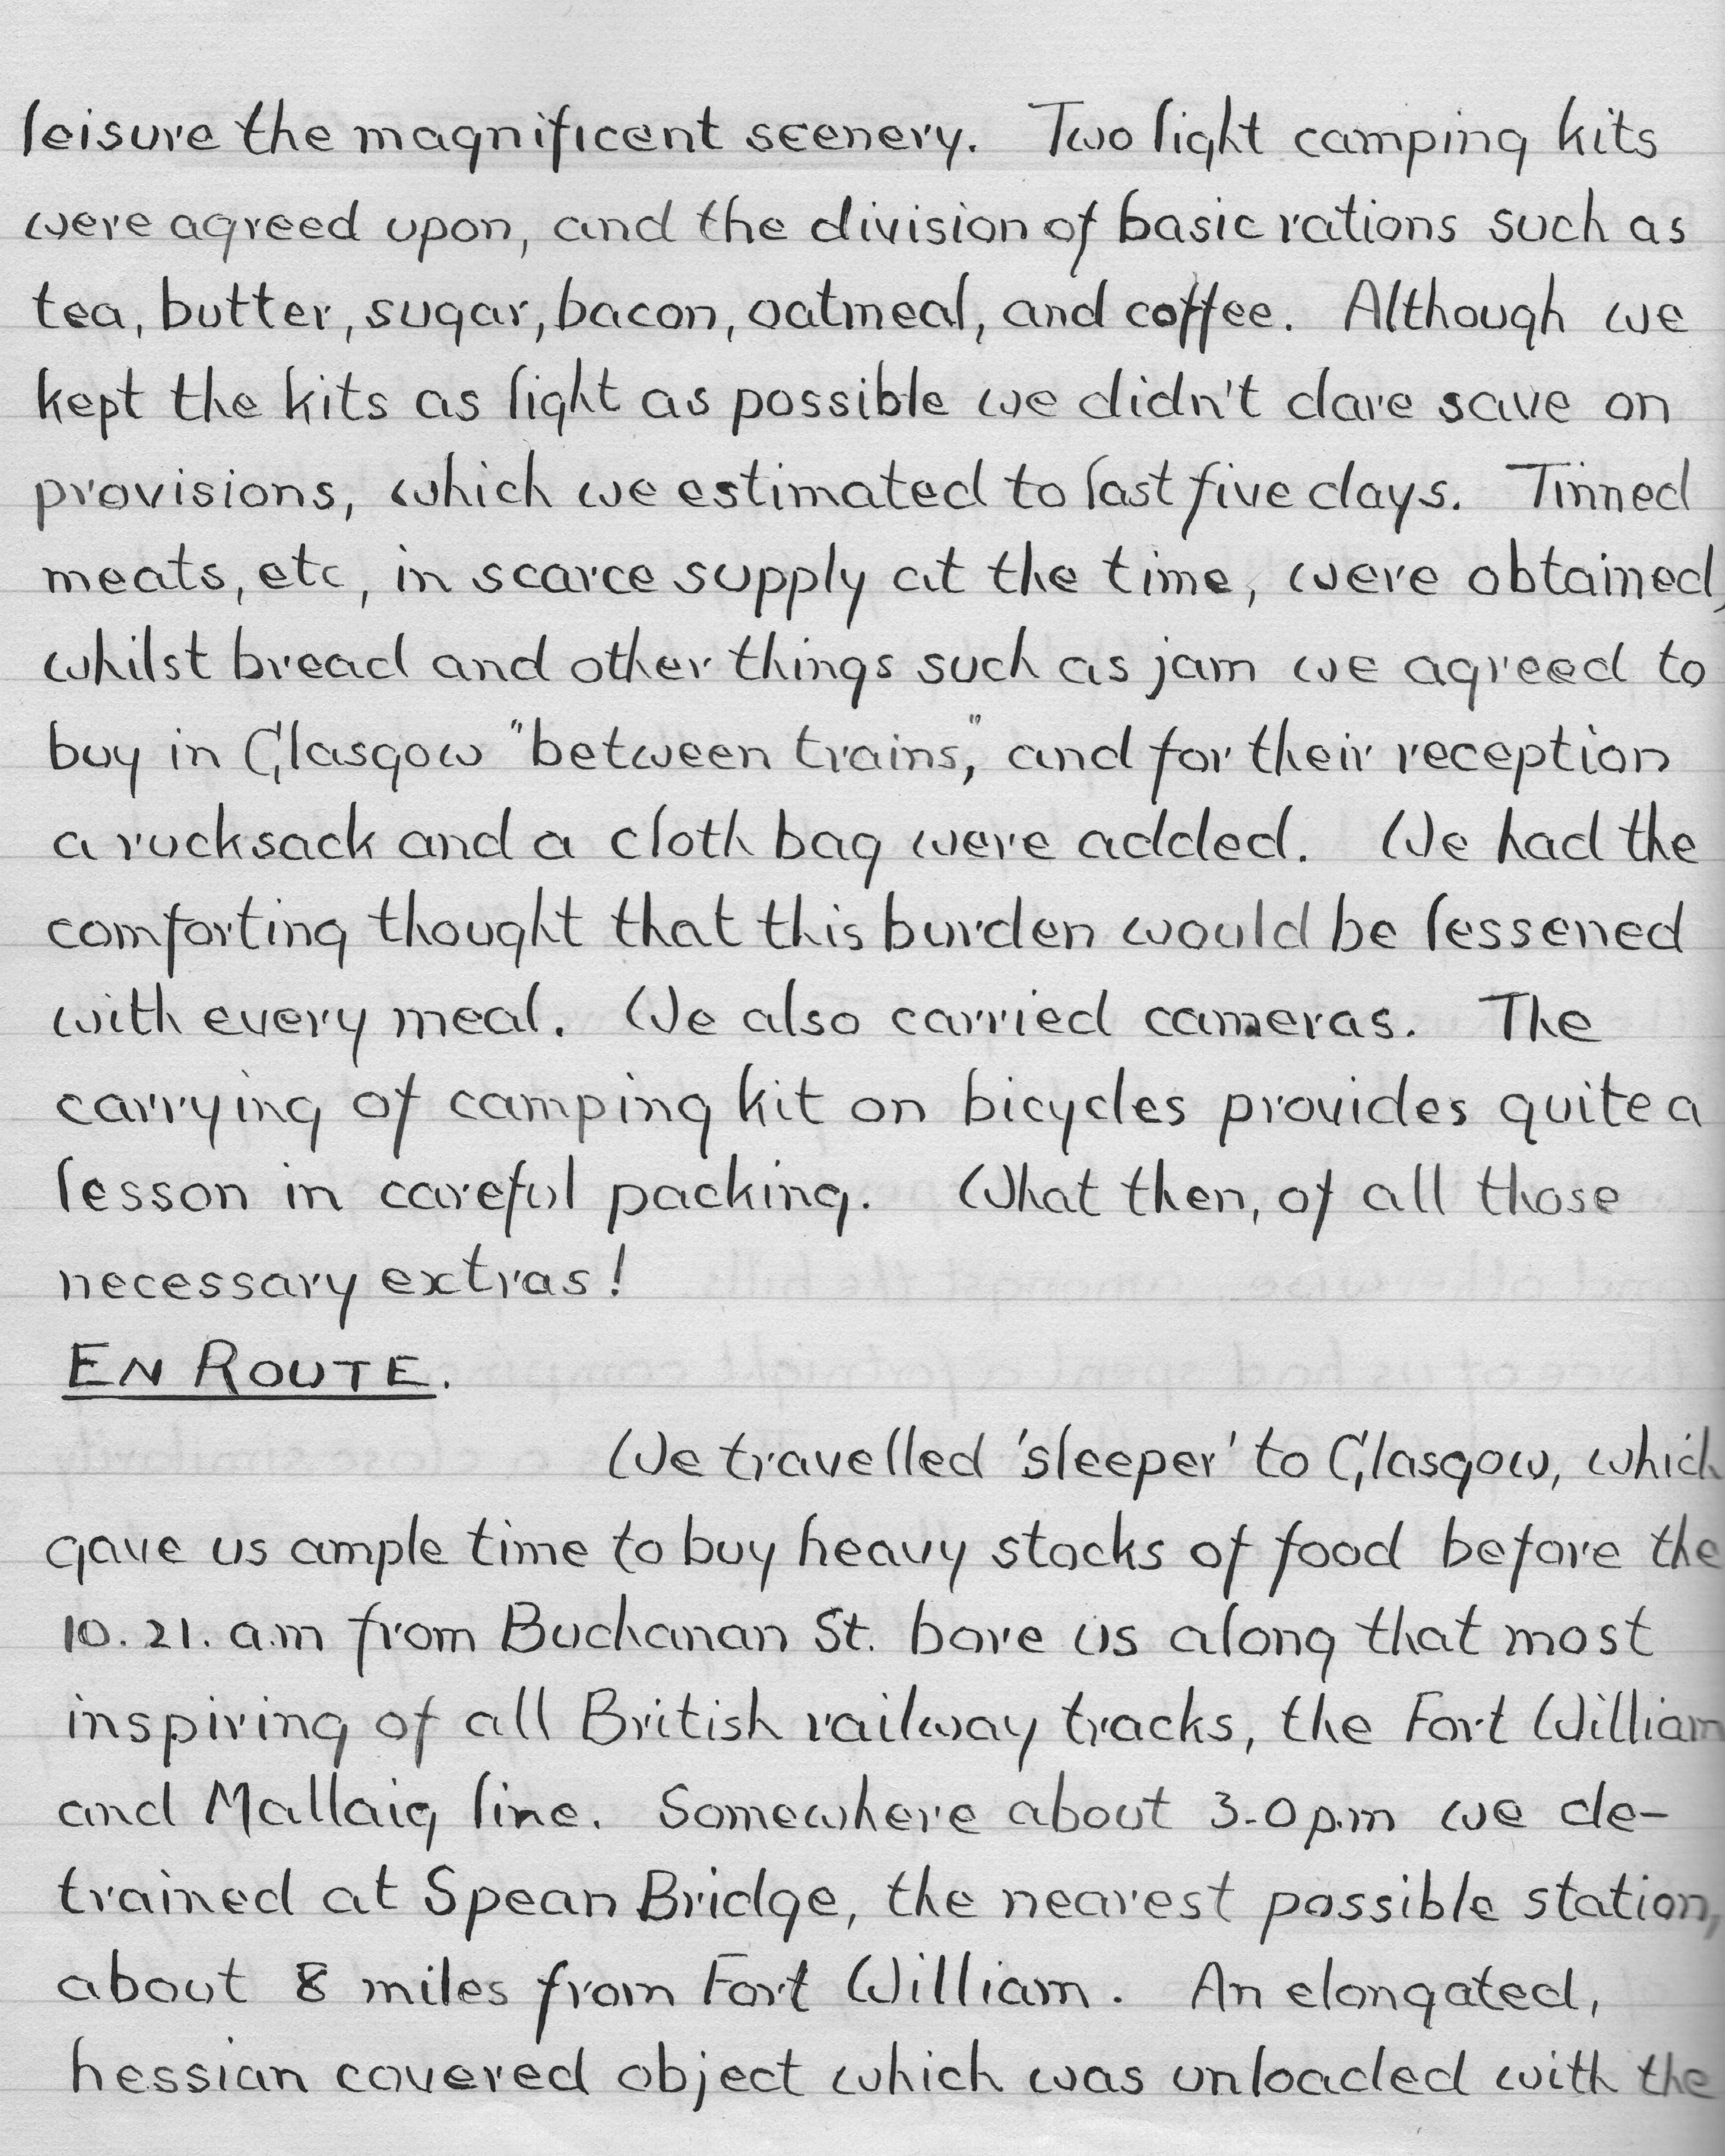 leisure the magnificent scenery. Two light camping kits
were agreed upon, and the division of basic rations such as
tea, butter, sugar, bacon, oatmeal, and coffee. Although we
kept the kits as light as possible we didn't dare save on
provisions, which we estimated to last five days. Tinned
meats, etc, in scarce supply at the time, were obtained,
whilst bread and other things such as jam we agreed to
buy in Glasgow "between trains," and for their reception
a rucksack and a cloth bag were added. We had the
comforting thought that this burden would be lessened
with every meal. We also carried cameras. The
carrying of camping kit on bicycles provides quite a
lesson in careful packing. What then, of all those
necessary extras!
EN ROUTE.
We travelled 'sleeper' to Glasgow, which
gave us ample time to buy heavy stocks of food before the
10.21. a.m from Buchanan St. bore us along that most
inspiring of all British railway tracks, the Fort William
and Mallaig line. Somewhere about 3-0 p.m we de-
trained at Spean Bridge, the nearest possible station,
about 8 miles from Fort William. An elongated,
hessian covered object which was unloaded with the